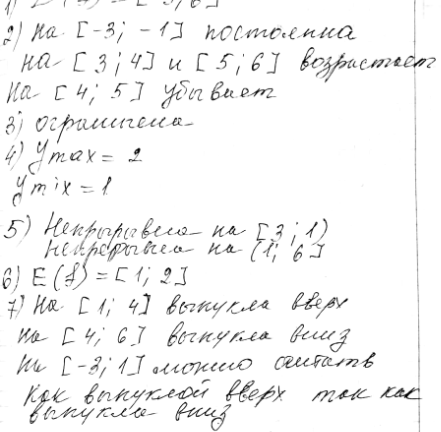 1) D (f) = [-3; 6]
2) На [-3; -1] постоянна
на [3; 4] и [5; 6] возрастает
На [4; 5] убывает
3) ограничена
4) Ymax = 2
Ymix = 1
5) Непрерывна на [3; 1)
непрерывна на (1; 6]
6) E (f) = [1; 2]
7) На [1; 4] выпукла вверх
на [4; 6] выпукла вниз
на [-3; 1] можно считать
как выпуклой вверх так как
выпукла вниз